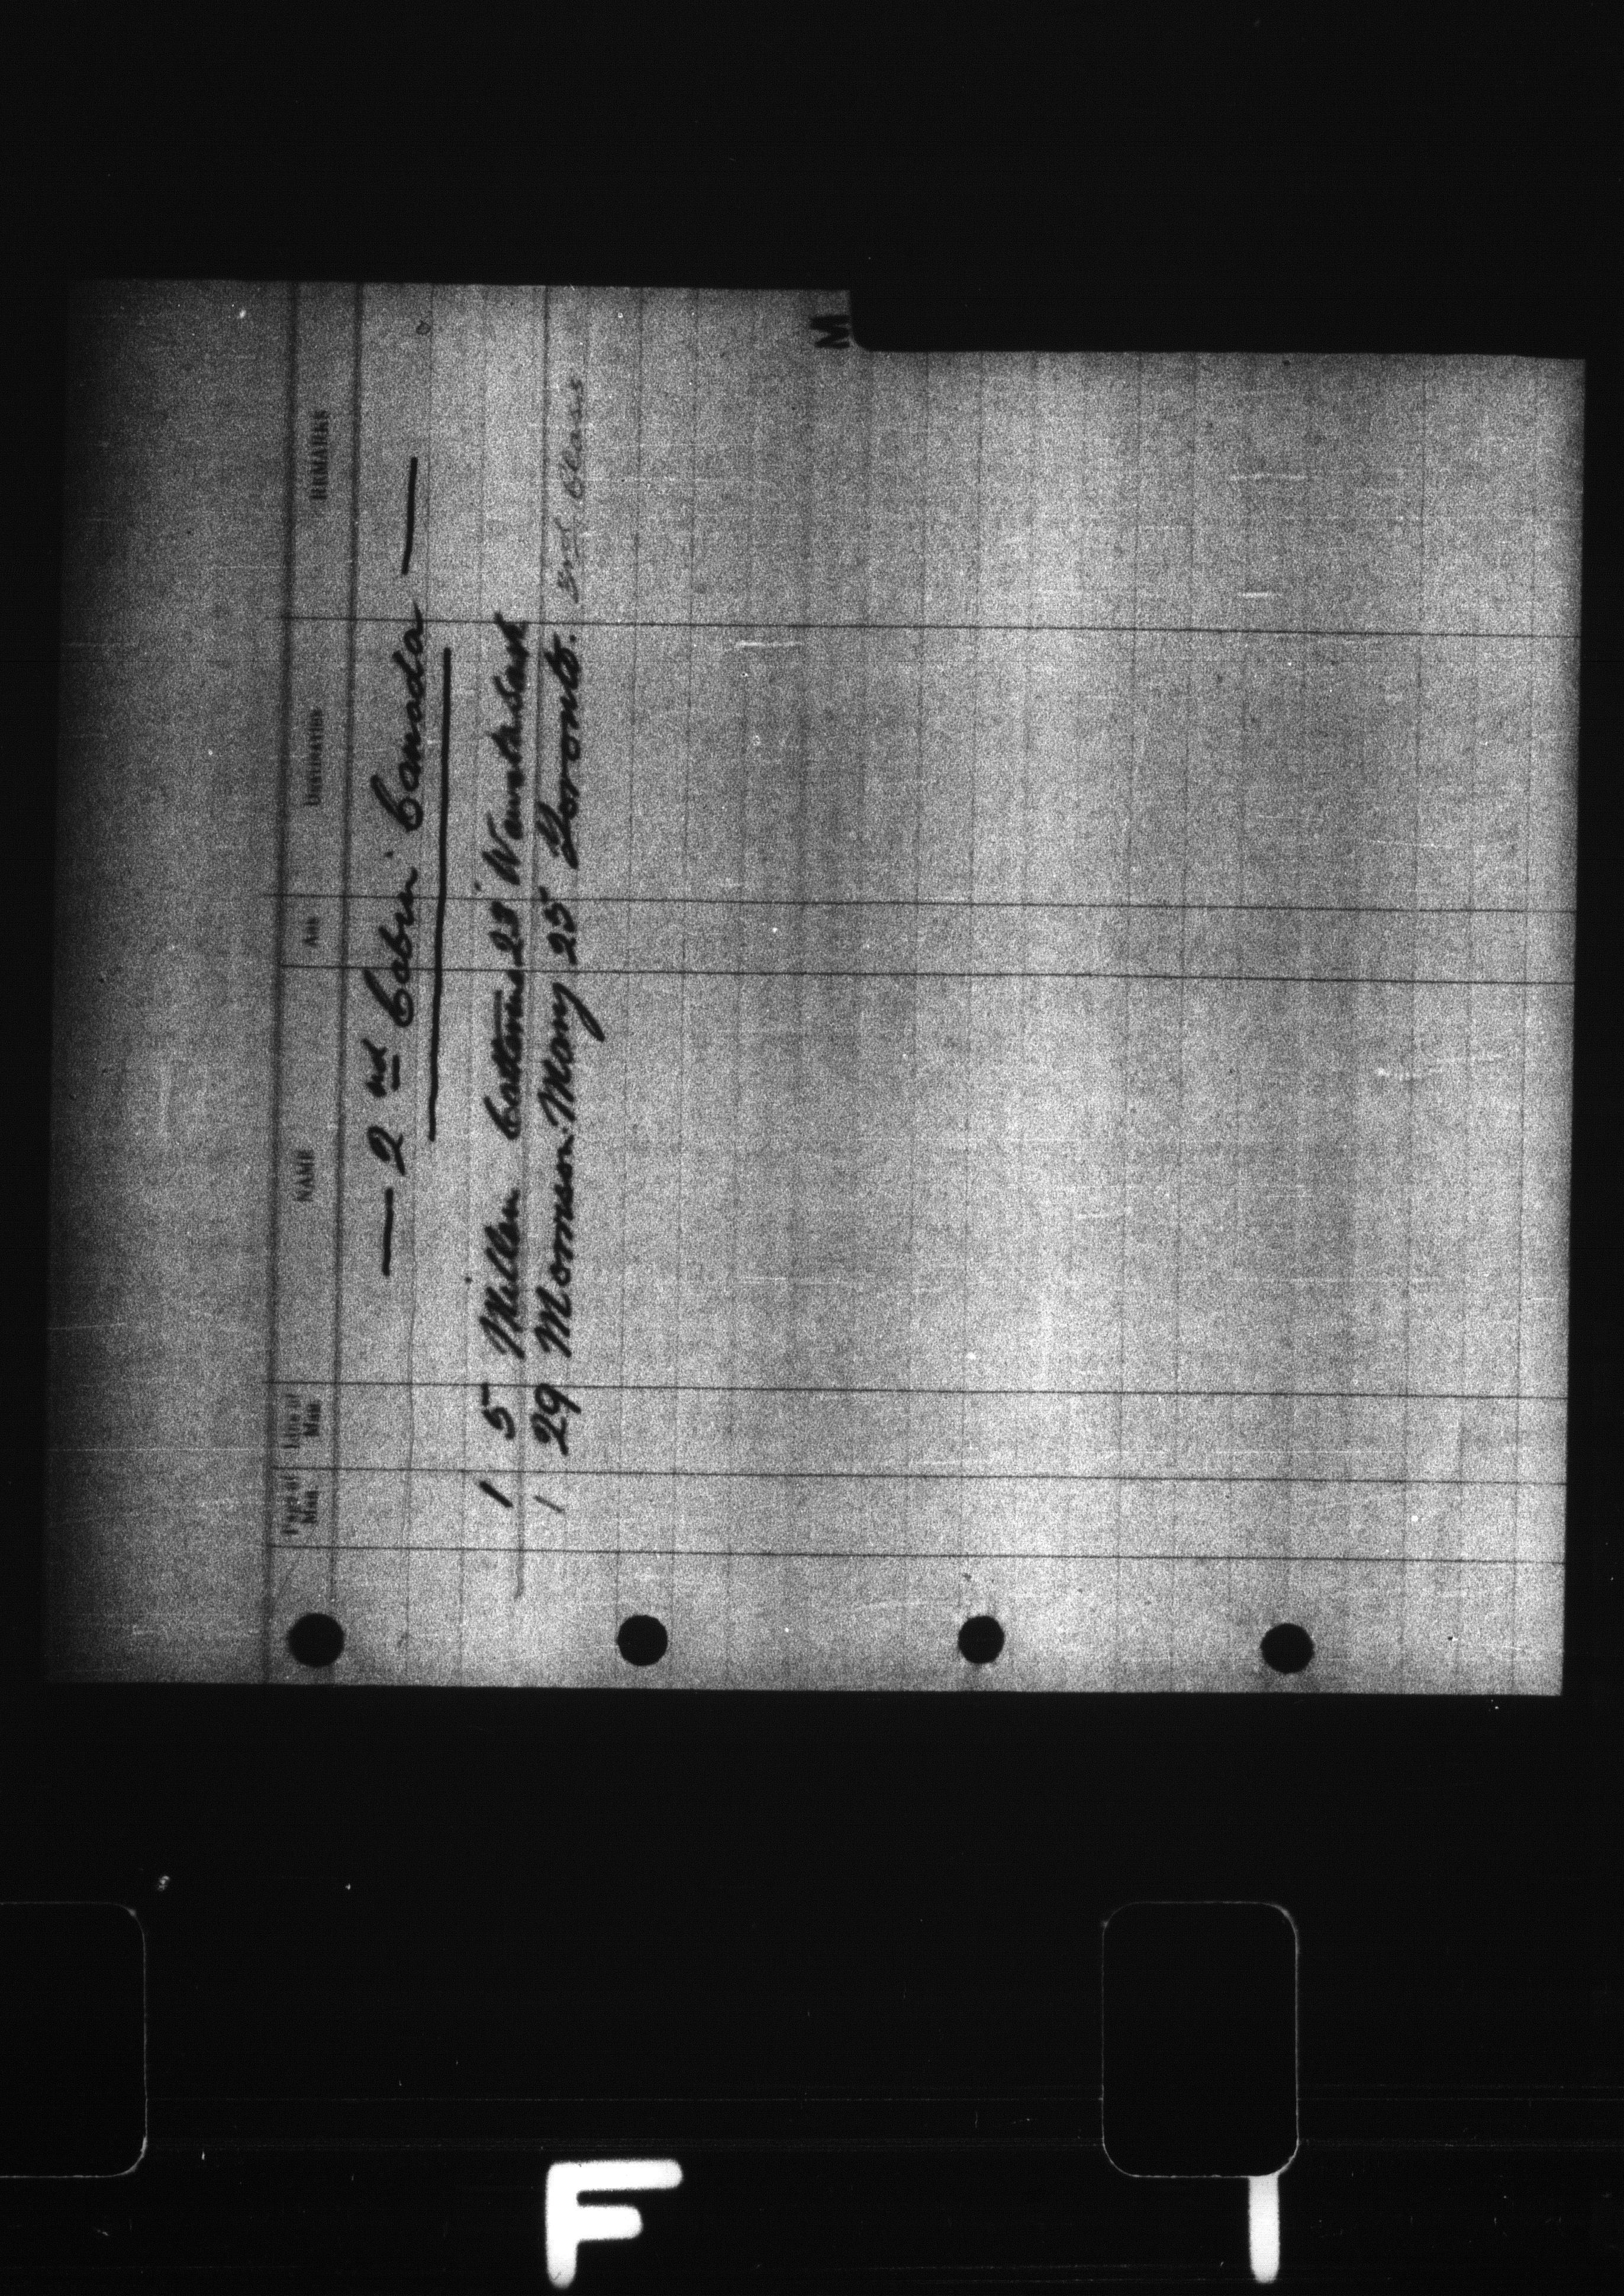 M
Page of Man Line of Man NAME AGE DESTINATION REMARKS
— 2nd Cabin Canada —
1 5 Miller 23
1 29 Morrison Mary 25 Toronto. 3rd Class
F